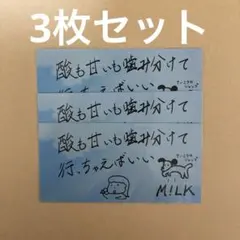 3枚セット
酸も甘いも噛み分けて
酸も甘いも噛み分けて
酸も甘いも噛み分けて
行っちゃえばいい
M!LK